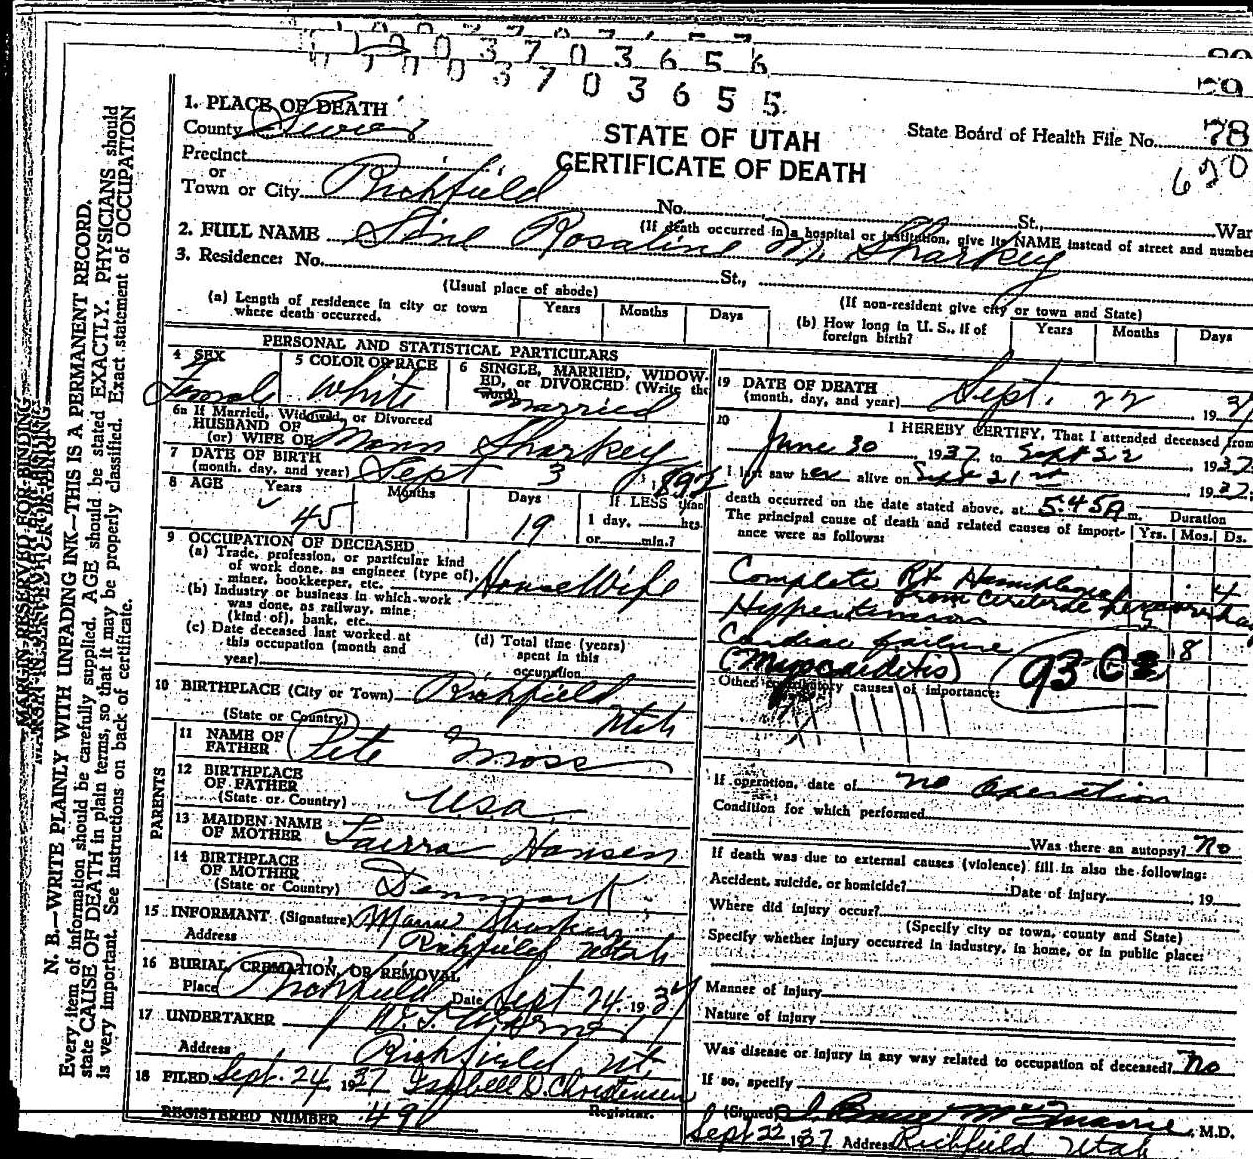 0 3 7 0 3 6 5 6
0 3 7 0 3 6 5 5
79
STATE OF UTAH
CERTIFICATE OF DEATH
State Board of Health File No. 78
670
1. PLACE OF DEATH
County Sevier
Precinct
or
Town or City Richfield
No. St., War
(If death occurred in a hospital or institution, give its NAME instead of street and number
2. FULL NAME Sine Rosaline M. Sharkey
3. Residence: No. St.,
(Usual place of abode) (If non-resident give city or town and State)
(a) Length of residence in city or town where death occurred. Years Months Days
(b) How long in U. S., if of foreign birth? Years Months Days
PERSONAL AND STATISTICAL PARTICULARS
4 SEX Female
5 COLOR OR RACE White
6 SINGLE, MARRIED, WIDOWED, or DIVORCED (Write the word) Married
6a If Married, Widowed, or Divorced
HUSBAND OF
(or) WIFE OF Mann Sharkey
7 DATE OF BIRTH
(month, day, and year) Sept 3, 1892
8 AGE Years 45 Months Days 19 If LESS than
1 day, hrs.
or min.?
9 OCCUPATION OF DECEASED
(a) Trade, profession, or particular kind
of work done, as engineer (type of),
miner, bookkeeper, etc. House Wife
(b) Industry or business in which work
was done, as railway, mine
(kind of), bank, etc.
(c) Date deceased last worked at
this occupation (month and
year)
(d) Total time (years)
spent in this
occupation
10 BIRTHPLACE (City or Town) Richfield
(State or Country) Utah
PARENTS
11 NAME OF
FATHER Pete Moss
12 BIRTHPLACE
OF FATHER
(State or Country) U.S.a.
13 MAIDEN NAME
OF MOTHER Laurra Hansen
14 BIRTHPLACE
OF MOTHER
(State or Country) Denmark
15 INFORMANT (Signature) Mann Sharkey
Address Richfield Utah
16 BURIAL, CREMATION, OR REMOVAL
Place Richfield Date Sept 24, 1937
17 UNDERTAKER
Address Richfield Ut.
18 FILED Sept. 24, 1937 Isabell D. Christensen
Registrar.
REGISTERED NUMBER 490
19 DATE OF DEATH
(month, day, and year) Sept. 22, 193
20 I HEREBY CERTIFY, That I attended deceased from
June 30, 1937, to Sept 22, 1937
I last saw her alive on Sept 21st, 1937;
death occurred on the date stated above, at 5:45 A m.
The principal cause of death and related causes of importance were as follows:
Duration
Yrs. Mos. Ds.
Complete Rt Hemiplegia 4
from cerebral
Hypertension
Cardiac failure 8
(Myocarditis) 93 C
Other contributory causes of importance:
If operation, date of no operation
Condition for which performed
Was there an autopsy? No
If death was due to external causes (violence) fill in also the following:
Accident, suicide, or homicide? Date of injury, 19
Where did injury occur?
(Specify city or town, county and State)
Specify whether injury occurred in industry, in home, or in public place:
Manner of injury
Nature of injury
Was disease or injury in any way related to occupation of deceased? No
If so, specify
(Signed) , M.D.
Sept 22 1937 Address Richfield Utah
N. B.—WRITE PLAINLY WITH UNFADING INK—THIS IS A PERMANENT RECORD.
Every item of information should be carefully supplied. AGE should be stated EXACTLY. PHYSICIANS should
state CAUSE OF DEATH in plain terms, so that it may be properly classified. Exact statement of OCCUPATION
is very important. See instructions on back of certificate.
MARGIN RESERVED FOR BINDING